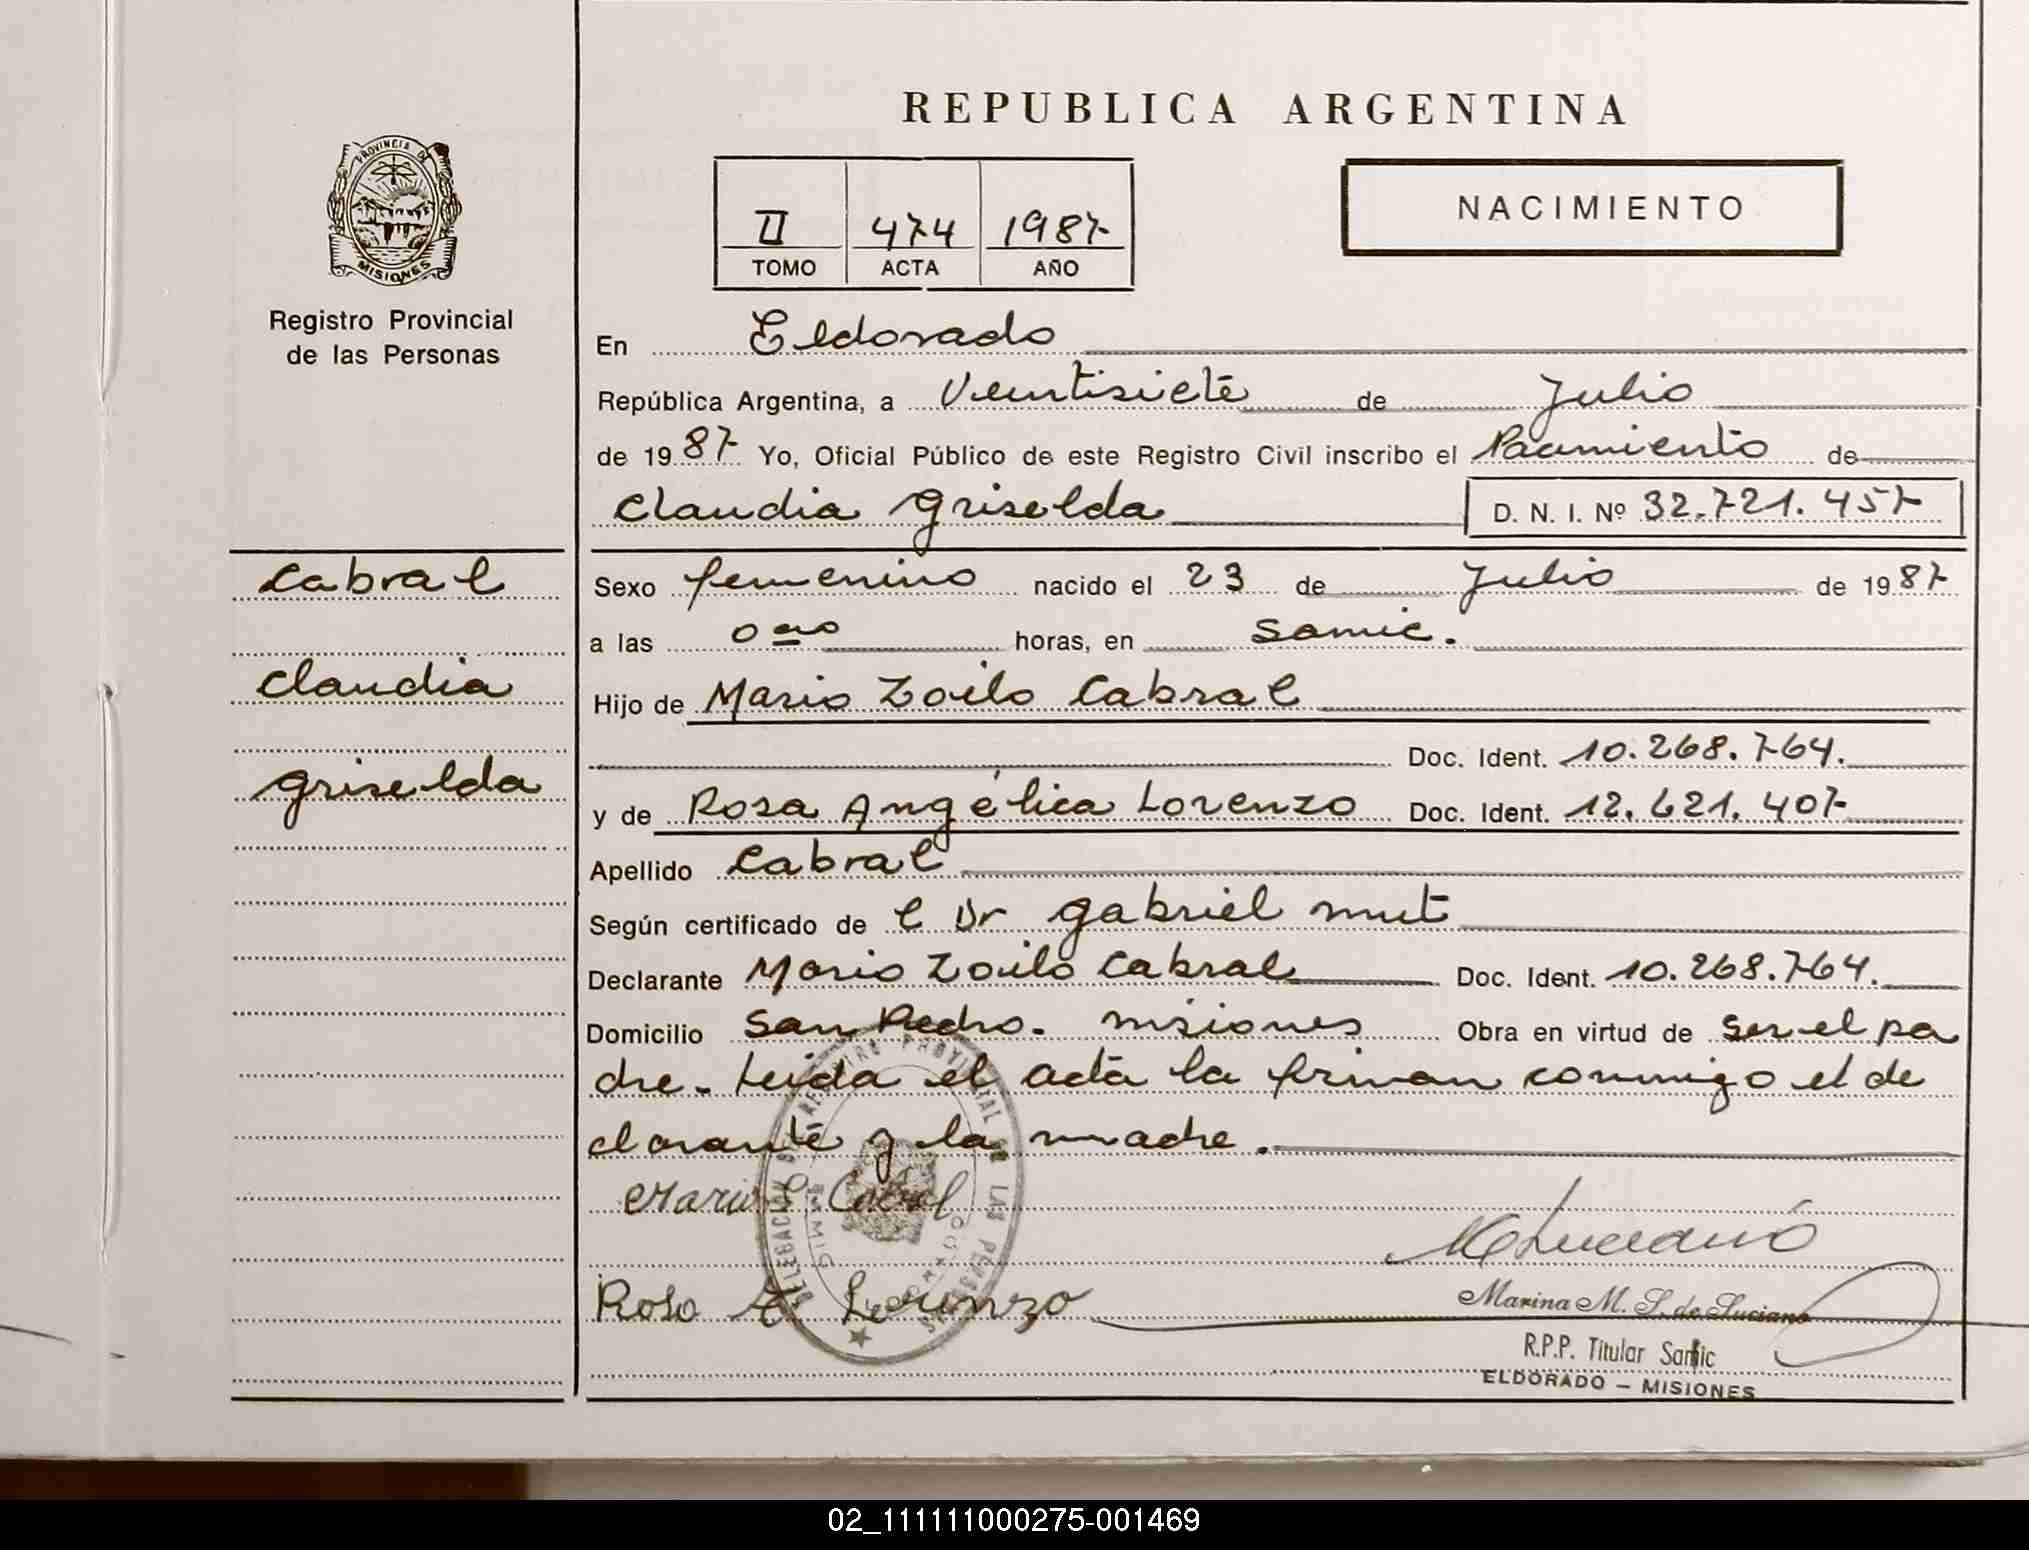 REPUBLICA ARGENTINA
PROVINCIA DE
MISIONES
Registro Provincial
de las Personas
II 474 1987
TOMO ACTA AÑO
NACIMIENTO
En Eldorado
República Argentina, a Veintisiete de Julio
de 1987 Yo, Oficial Público de este Registro Civil inscribo el Nacimiento de
Claudia Griselda D. N. I. Nº 32.721.457
Cabral
Claudia
Griselda
Sexo femenino nacido el 23 de Julio de 1987
a las 0 horas, en Samic.
Hijo de Mario Zoilo Cabral
Doc. Ident. 10.268.764.
y de Rosa Angélica Lorenzo Doc. Ident. 12.621.407
Apellido Cabral
Según certificado de l Dr Gabriel Mut
Declarante Mario Zoilo Cabral Doc. Ident. 10.268.764.
Domicilio San Pedro. Misiones Obra en virtud de ser el pa
dre. Leida el acta la firman conmigo el de
clarante y la madre.
Mario Z Cabral
Rosa A Lorenzo
Marina M. S. de Luciano
R.P.P. Titular Samic
ELDORADO – MISIONES
02_111111000275-001469